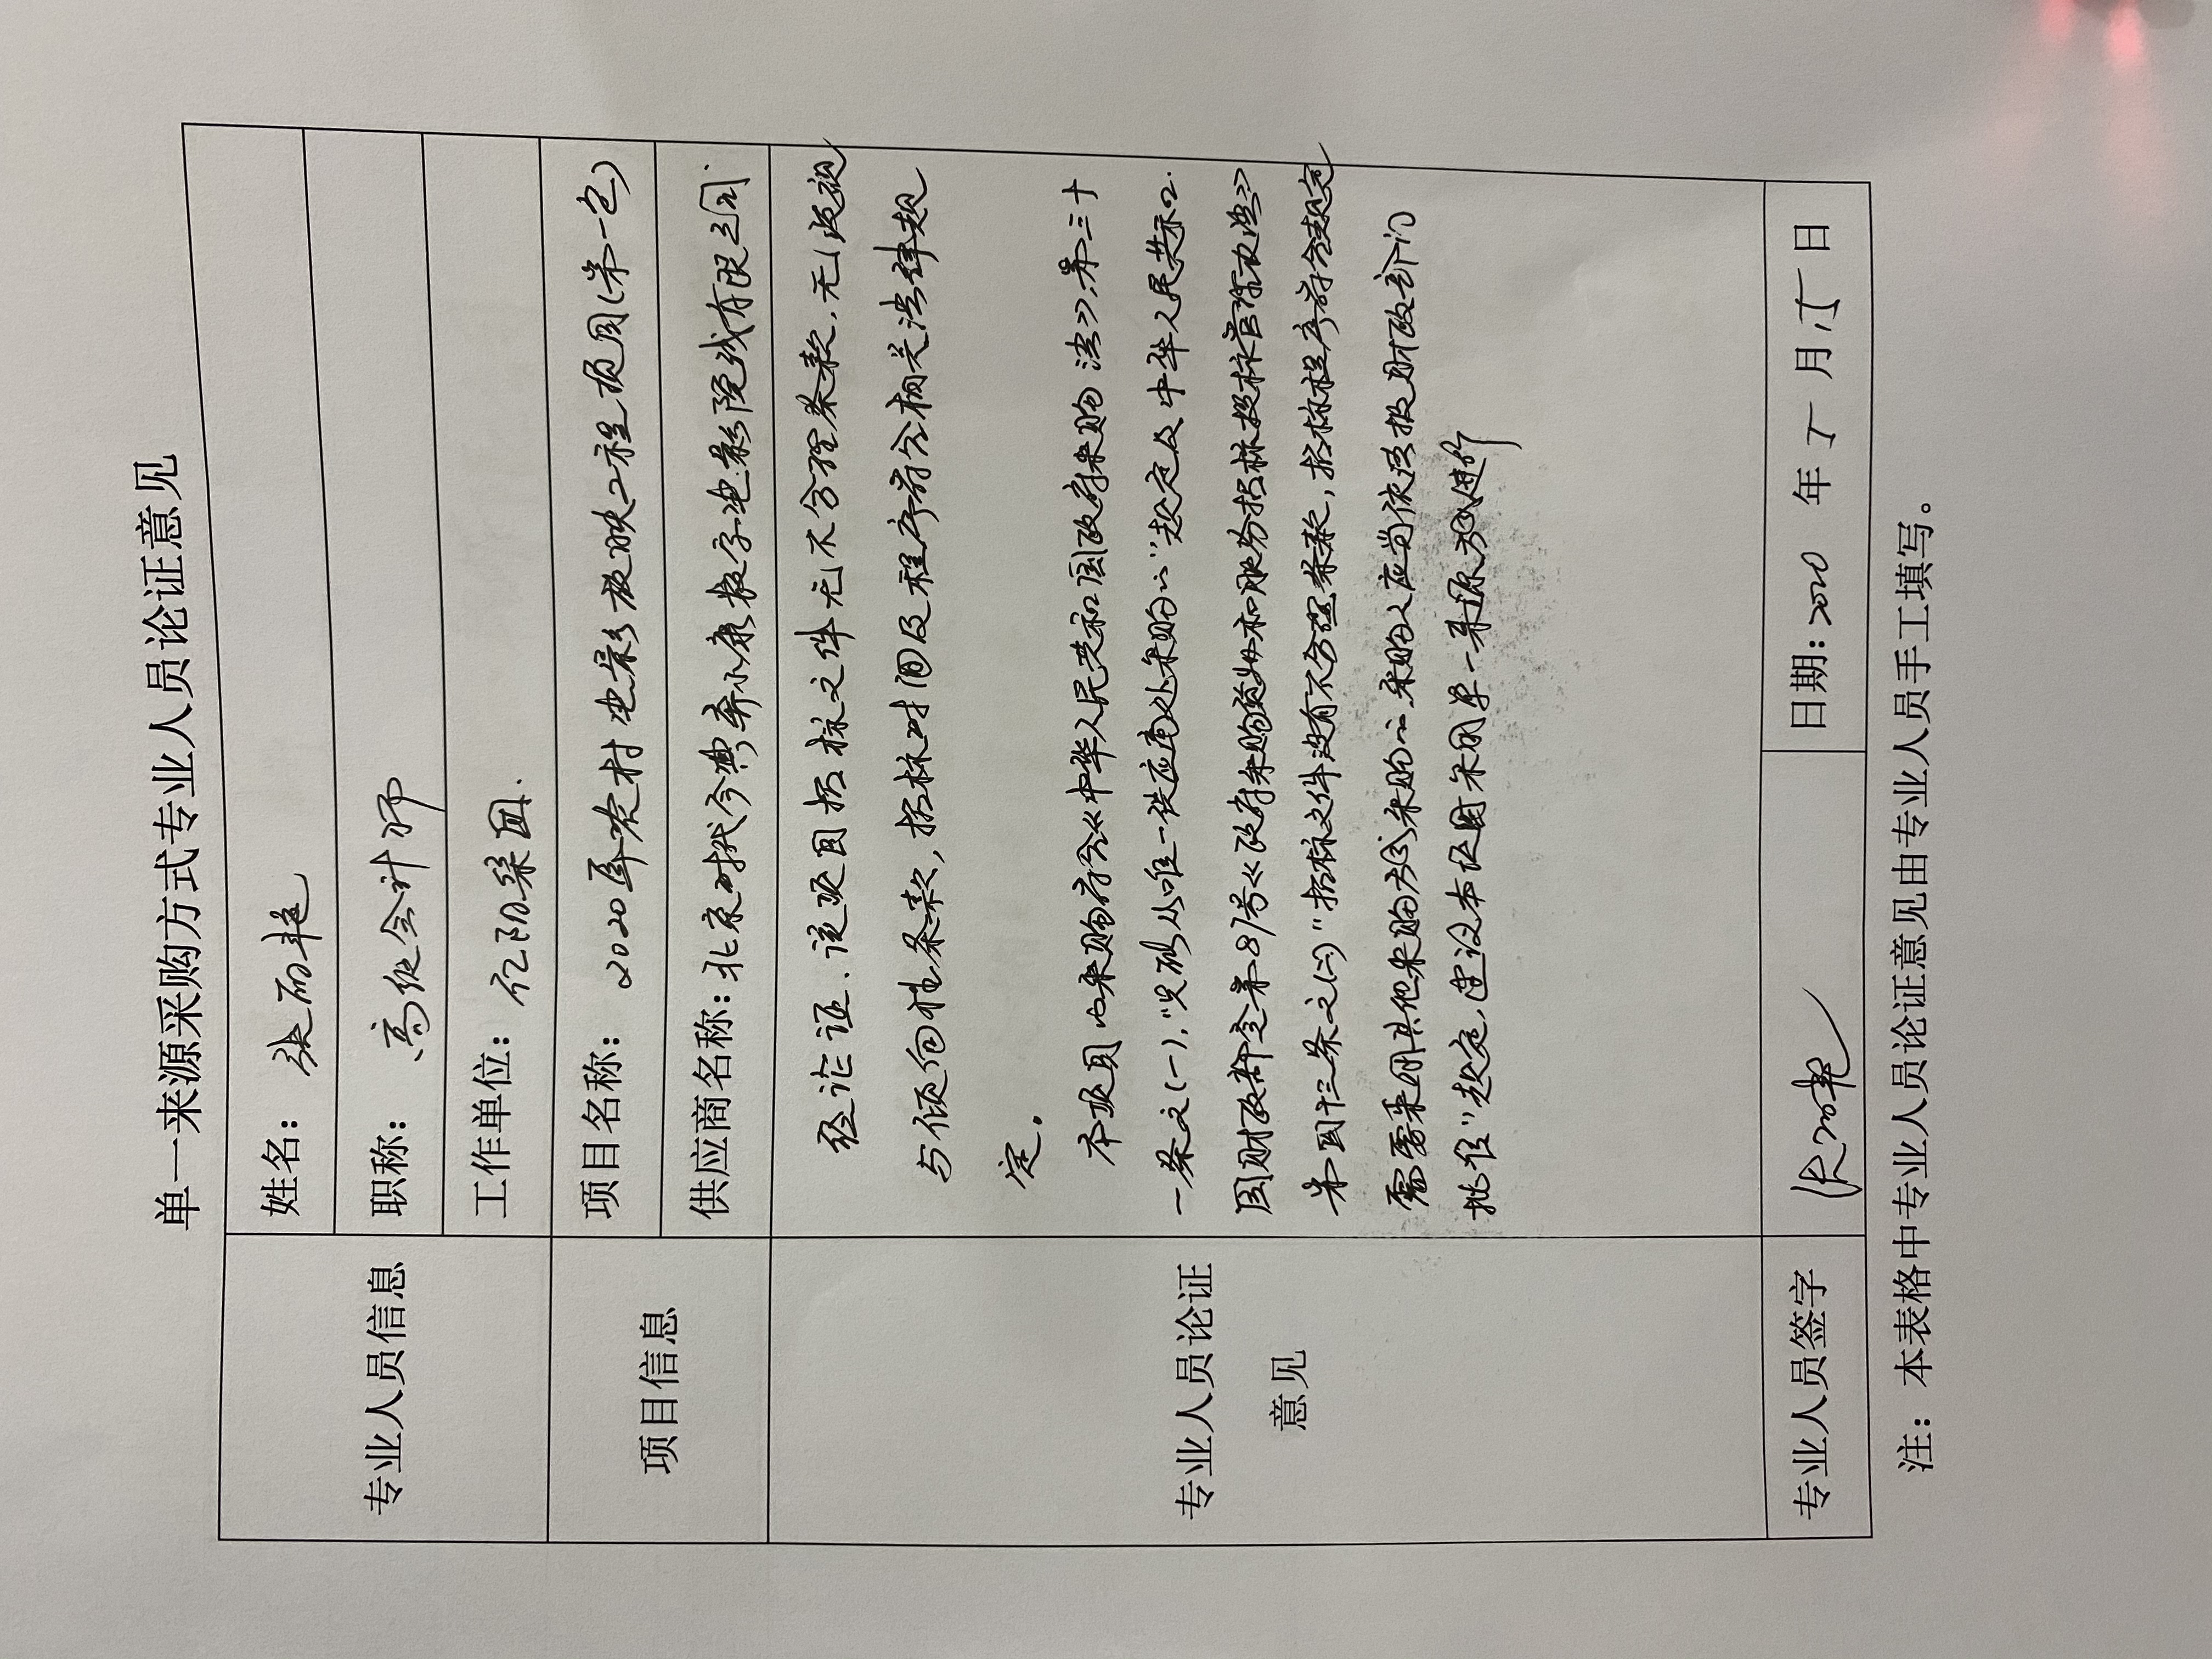 单一来源采购方式专业人员论证意见
专业人员信息
姓名：张丽艳
职称：高级会计师
工作单位：辽阳集团.
项目信息
项目名称：2020年农村电影放映工程项目(第一包)
供应商名称：北京时代今典奔小康数字电影院线有限公司.
专业人员论证
意见
经论证.该项目招标文件无不合理条款,无歧视
与倾向性条款,招标时间及程序符合相关法律规
定.
本项目的采购符合《中华人民共和国政府采购法》第三十
一条之(一),"只能从唯一供应商处采购的"规定及中华人民共和
国财政部令第87号《政府采购货物和服务招标投标管理办法》
第四十三条之(二)"招标文件没有不合理条款,招标程序符合规定
需要采用其他采购方式采购的,采购人应当依法报财政部门
批准"规定,建议本项目采用单一来源方式进行
专业人员签字
张丽艳
日期：2020 年 5 月 15 日
注：本表格中专业人员论证意见由专业人员手工填写。